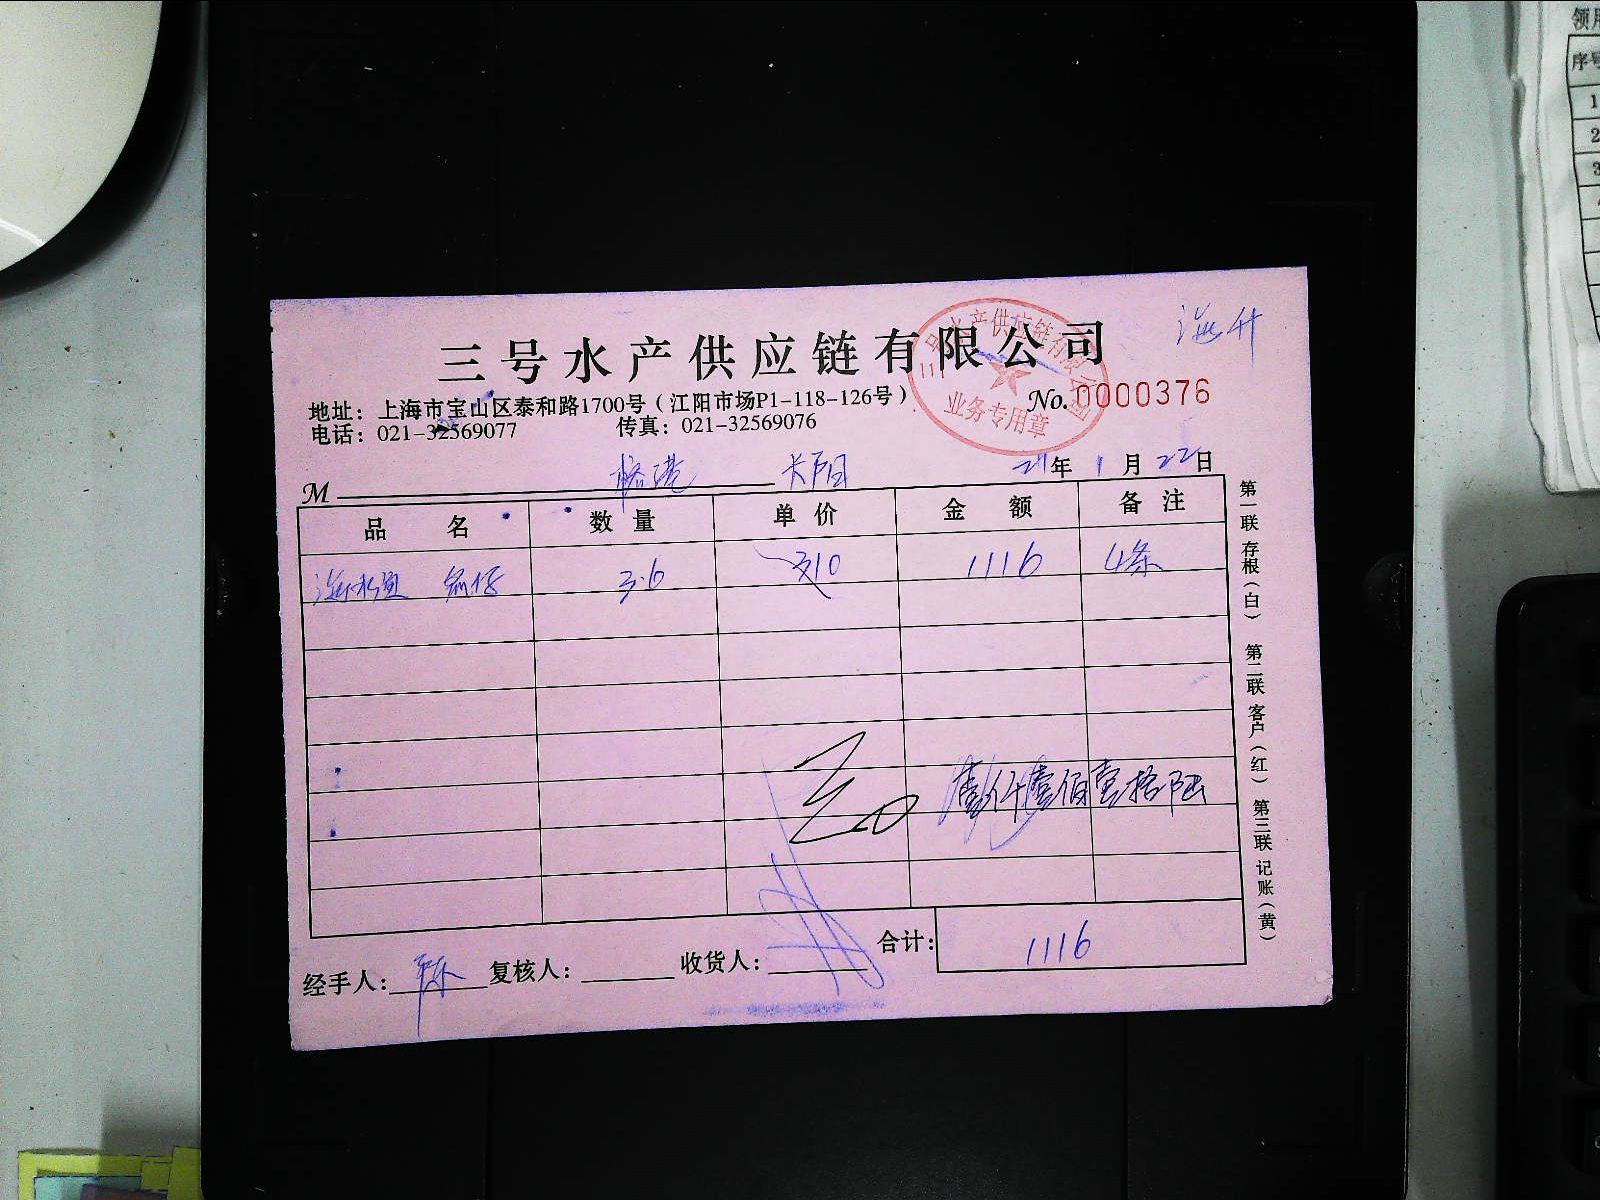 三号水产供应链有限公司
海升
地址：上海市宝山区泰和路1700号（江阳市场P1-118-126号）
No.0000376
电话：021-32569077 传真：021-32569076
三号水产供应链有限公司
业务专用章
M 21年1月22日
品名 数量 单价 金额 备注
3.6 310 1116 4条
壹仟壹佰壹拾陆
合计：1116
经手人： 复核人： 收货人：
第一联 存根（白） 第二联 客户（红） 第三联 记账（黄）
领用
序号
1
2
3